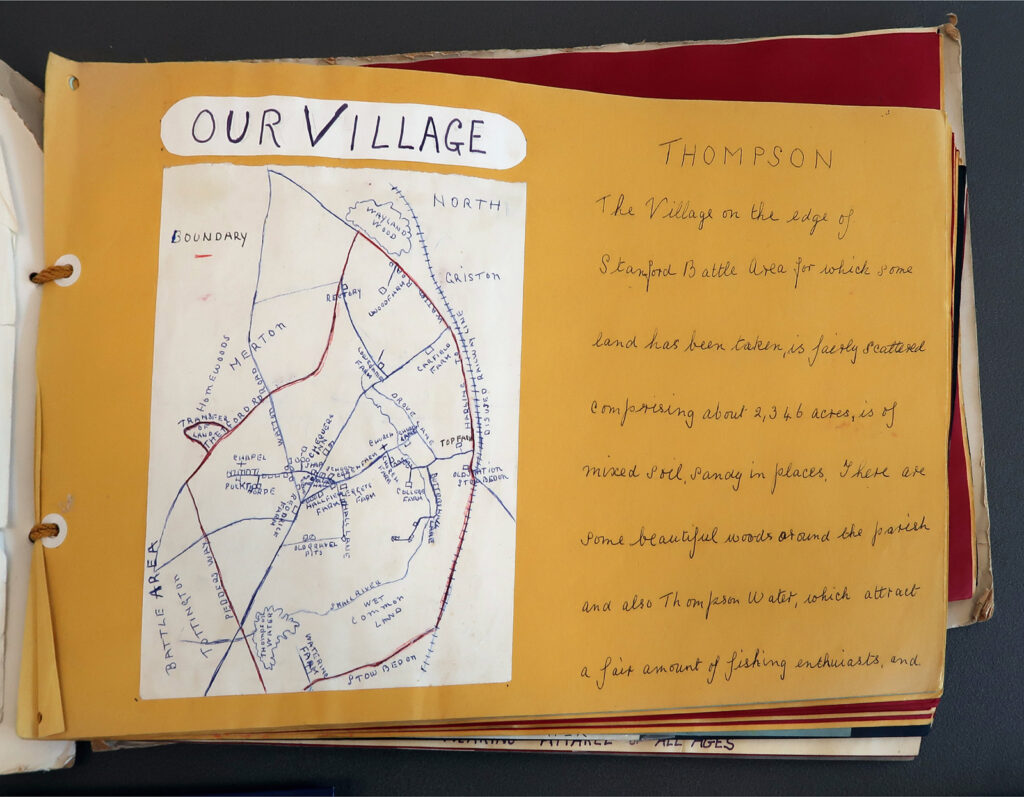 OUR VILLAGE
BOUNDARY
NORTH
WAYLAND
WOOD
GRISTON
RECTORY
WOODFARM
WATTON ROAD
MERTON
HOMEWOODS
LOWER
FARM
CARFIELD
FARM
DISUSED RAILWAY LINE
TRANSFER
OF
LAND
THETFORD RD
WATTON ROAD
DROVE LANE
CHEQUERS
INN
CHURCH
TOP FARM
CHAPEL
SCHOOL
CHURCH
FARM
COLLEGE
FARM
OLD STATION
STOW BEDON
HALL LANE
REDBRICK
FARM
BUTTERMILK LANE
OLD GRAVEL
PITS
BATTLE AREA
TOTTINGTON
PEDDERS WAY
SMALL RIVER
WET
COMMON
LAND
THOMPSON
WATER
WATERING
FARM
STOW BEDON
THOMPSON
The Village on the edge of
Stanford Battle Area for which some
land has been taken, is fairly scattered
comprising about 2,346 acres, is of
mixed soil, sandy in places. There are
some beautiful woods around the parish
and also Thompson Water, which attract
a fair amount of fishing enthuiasts, and
APPAREL OF ALL AGES